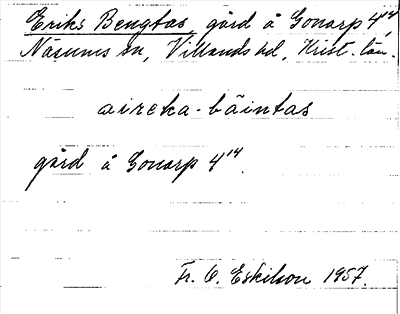 Eriks Bengtas, gård å Gonarp 4¹⁴,
Näsums sn, Villands hd, Krist. län.
aireka-bäintas
gård å Gonarp 4¹⁴.
Fr. O. Eskilson 1957.